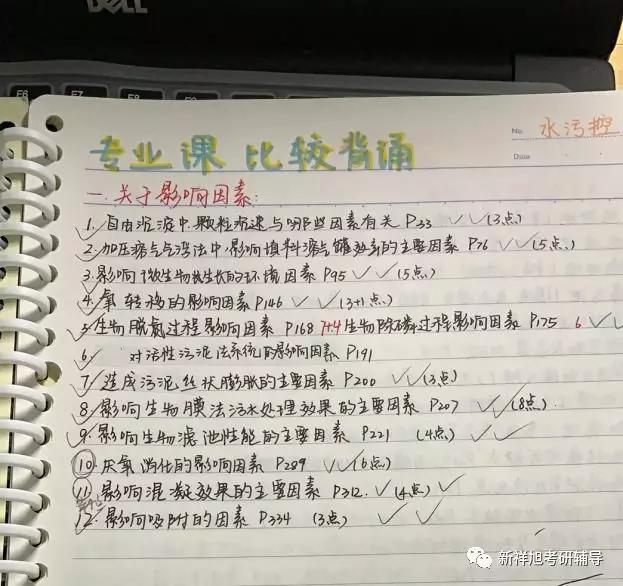 DELL
F6 F7 F8
No. 水污控
Date
专业课 比较背诵
一.关于影响因素:
1.自由沉淀中,颗粒沉速与哪些因素有关 P33 ✓ ✓ (3点)
2.加压溶气气浮法中,影响填料溶气罐效率的主要因素 P76 ✓ ✓ (5点)
3.影响微生物生长的环境因素 P95 ✓ ✓ (5点)
4.氧转移的影响因素 P146 ✓ ✓ (3+1点)
5.生物脱氮过程影响因素 P168 7+4 生物除磷过程影响因素 P175 6 ✓ ✓
6. 对活性污泥法系统的影响因素 P191
7.造成污泥丝状膨胀的主要因素 P200 ✓ ✓ (3点)
8.影响生物膜法污水处理效果的主要因素 P207 ✓ ✓ (8点)
9.影响生物滤池性能的主要因素 P221 (4点) ✓ ✓
10.厌氧消化的影响因素 P289 ✓ ✓ (6点)
11.影响混凝效果的主要因素 P312. ✓ (4点) ✓
12.影响吸附的因素 P334 (3点) ✓ ✓
新祥旭考研辅导